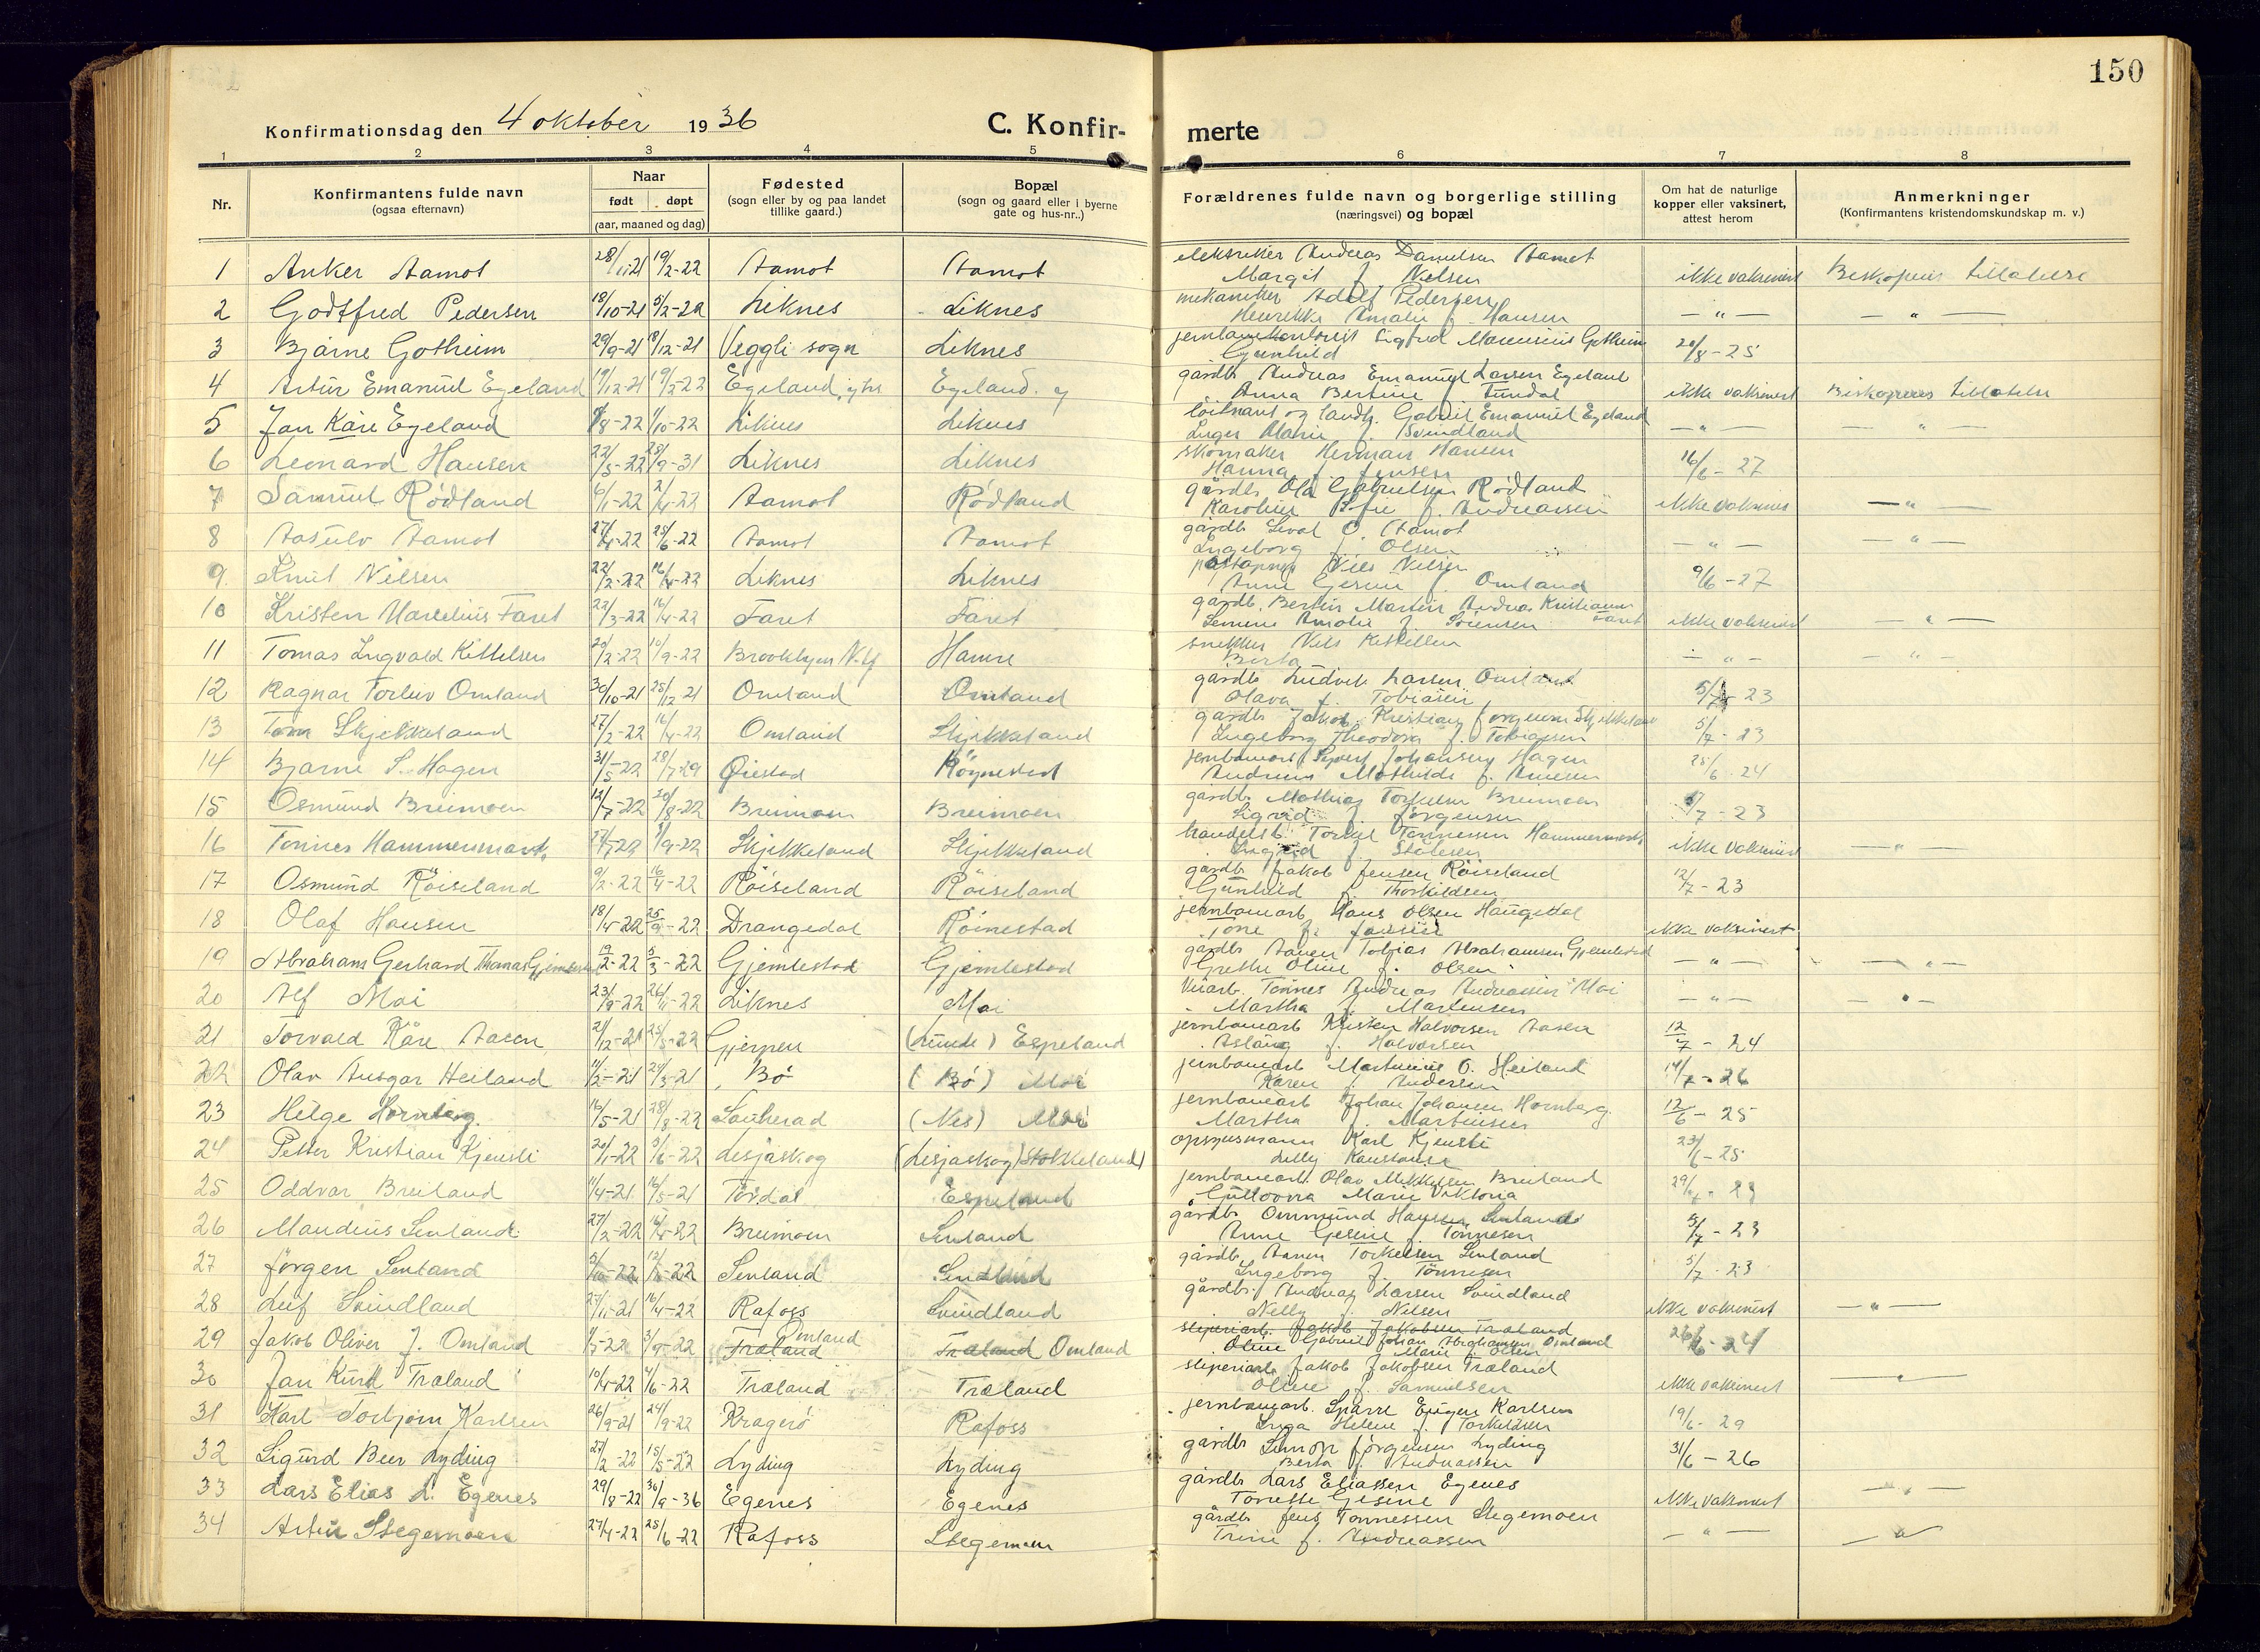 150
Konfirmationsdag den 4 oktober 1936
C. Konfir- merte
1 2 3 4 5 6 7 8
Nr.
Konfirmantens fulde navn
(ogsaa efternavn)
Naar
født døpt
(aar, maaned og dag)
Fødested
(sogn eller by og paa landet
tillike gaard.)
Bopæl
(sogn og gaard eller i byerne
gate og hus-nr..)
Forældrenes fulde navn og borgerlige stilling
(næringsvei) og bopæl
Om hat de naturlige
kopper eller vaksinert,
attest herom
Anmerkninger
(Konfirmantens kristendomskundskap m. v.)
1 Anker Aamot 28/11-21 19/2-22 Aamot Aamot Andreas Danielsen Aamot
Margit f. Nielsen ikke vaksinert Biskopens tillatelse
2 Godtfred Pedersen 18/10-21 5/2-22 Liknes Liknes mekaniker Adolf Pedersen
Henrikke Amalie f. Hansen — " — — " —
3 Bjarne Gotheim 29/9-21 18/12-21 Veggli sogn Liknes Sigfred Marensius Gotheim
Gunhild 20/8-25
4 Artur Emanuel Egeland 19/12-21 19/2-22 Egeland, ytre Egeland, y gårdb. Andreas Emanuel Larsen Egeland
Anna Bertine f. Tundal ikke vaksinert Biskopens tillatelse
5 Jan Kåre Egeland 9/8-22 1/10-22 Liknes Liknes løitnant og landh. Gabriel Emanuel Egeland
Inger Marie f. Svindland — " — — " —
6 Leonard Hansen 22/5-22 25/9-31 Liknes Liknes skomaker Herman Hansen
Hanna f. Jensen 16/6-27
7 Samuel Rødland 6/1-22 2/4-22 Aamot Rødland gårdb. Ola Gabrielsen Rødland
Karoline Sofie f. Andreassen ikke vaksinert — " —
8 Aasulv Aamot 27/4-22 25/6-22 Aamot Aamot gårdb. O. Aamot
Ingeborg f. Olsen — " — — " —
9. Knut Nilsen 22/2-22 16/4-22 Liknes Liknes Niels Nielsen
Anne Gesine f. Omland 9/6-27
10 Kristen Marselius Faret 22/3-22 16/4-22 Faret Faret gårdb. Bertin Martin Andreas Kristiansen Faret
Amalie f. Sørensen ikke vaksinert — " —
11 Tomas Ingvald Kittelsen 20/2-22 10/9-22 Brooklyn N.Y. Hamre snekker Niels Kittelsen
Berta — " — — " —
12 Ragnar Torleiv Omland 30/10-21 25/12-21 Omland Omland gårdb. Ludvik Larsen Omland
Olava f. Tobiasen 5/7-23
13 Tom Skjekkeland 27/2-22 16/4-22 Omland Skjekkeland gårdb. Jakob Kristian Jørgensen Skjekkeland
Ingeborg Theodora f. Tobiasen 5/7-23
14 Bjarne S. Hagen 31/5-22 28/7-29 Øiestad Røynestad jernbanearb. Johansen Hagen
Andrine Mathilde f. Amesen 25/6-24
15 Osmund Breimoen 12/7-22 20/8-22 Breimoen Breimoen gårdb. Mathias Torkelsen Breimoen
Sigrid f. Jørgensen 5/7-23
16 Tønnes Hammersmark 27/7-22 3/9-22 Skjekkeland Skjekkeland handelsb. Torkel Tønnessen Hammersmark
f. Stølesen ikke vaksinert — " —
17 Osmund Røiseland 9/2-22 16/4-22 Røiseland Røiseland gårdb. Jakob Jensen Røiseland
Gunhild f. Thorkildsen 12/7-23
18 Olaf Hansen 18/4-22 25/9-22 Drangedal Røinestad jernbanearb. Hans Olsen Haugedal
Tone f. Jansen ikke vaksinert
19 Abraham Gerhard Thomas Gjemlestad 19/2-22 5/3-22 Gjemlestad Gjemlestad gårdb. Aanen Tobias Abrahamsen Gjemlestad
Grethe Oline f. Olsen — " — — " —
20 Alf Moi 23/9-22 26/11-22 Liknes Moi Veiarb. Tønnes Andreas Andreassen Moi
Martha f. Martinsen — " — — " —
21 Torvald Kåre Aasen 21/12-21 25/5-22 Gjerpen (Lunde) Espeland jernbanearb. Kristen Halvorsen Aasen
Aslaug f. Halvorsen 12/7-24
22 Olav Ansgar Heiland 11/2-21 24/3-21 Bø (Bø) Moi jernbanearb. Martinius O. Heiland
Karen f. Andersen 14/7-26
23 Helge Hornberg. 16/5-21 28/8-22 Sauherad (Nes) Moi jernbanearb. Johan Johansen Hornberg.
Martha f. Martinsen 12/6-25
24 Petter Kristian Kjensli 20/1-22 5/6-22 Lesjaskog (Lesjaskog) Stokkeland opsynsmann Karl Kjensli
Lilly Konstanse 23/6-25
25 Oddvar Breiland 11/4-21 16/5-21 Tørdal Espeland jernbanearb. Olav Mikkelsen Breiland
Marie Viktoria
26 Mandius Senland 27/2-22 16/4-22 Breimoen Senland gårdb. Ommund Hansen Senland
Anne Gesine f. Tønnesen 5/7-23
27 Jørgen Senland Senland Senland gårdb. Aanen Torkelsen Senland
Ingeborg f. Tønnesen 5/7-23
28 Leif Svindland 27/11-21 16/4-22 Rafoss Svindland gårdb. Andreas Larsen Svindland
Nelly f. Nilsen ikke vaksinert — " —
29 Jakob Oliver J. Omland 1/5-22 3/9-22 Træland Omland Træland Omland sliperiarb. Jakob Jakobsen Træland
Oline Gabriel Johan Abrahamsen Omland
Marie f. Olsen
30 Jan Kurt Træland 10/4-22 4/6-22 Træland Træland sliperiarb. Jakob Jakobsen Træland
Oline f. Samuelsen ikke vaksinert — " —
31 Karl Torbjørn Karlsen 26/9-21 24/9-22 Kragerø Rafoss jernbanearb. Sparre Eugen Karlsen
Inga Helene f. Torkildsen 19/6-29
32 Sigurd Beer Lyding 27/2-22 15/5-22 Lyding Lyding gårdb. Simon Jørgensen Lyding
Berta f. Andreassen 31/6-26
33 Lars Elias L. Egenes 29/8-22 30/9-36 Egenes Egenes gårdb. Lars Eliassen Egenes
Tonette Gesine ikke vaksinert — " —
34 Artur Stegemoen 27/4-22 25/6-22 Rafoss Stegemoen gårdb. Jens Tønnessen Stegemoen
Trine f. Andreassen — " — — " —